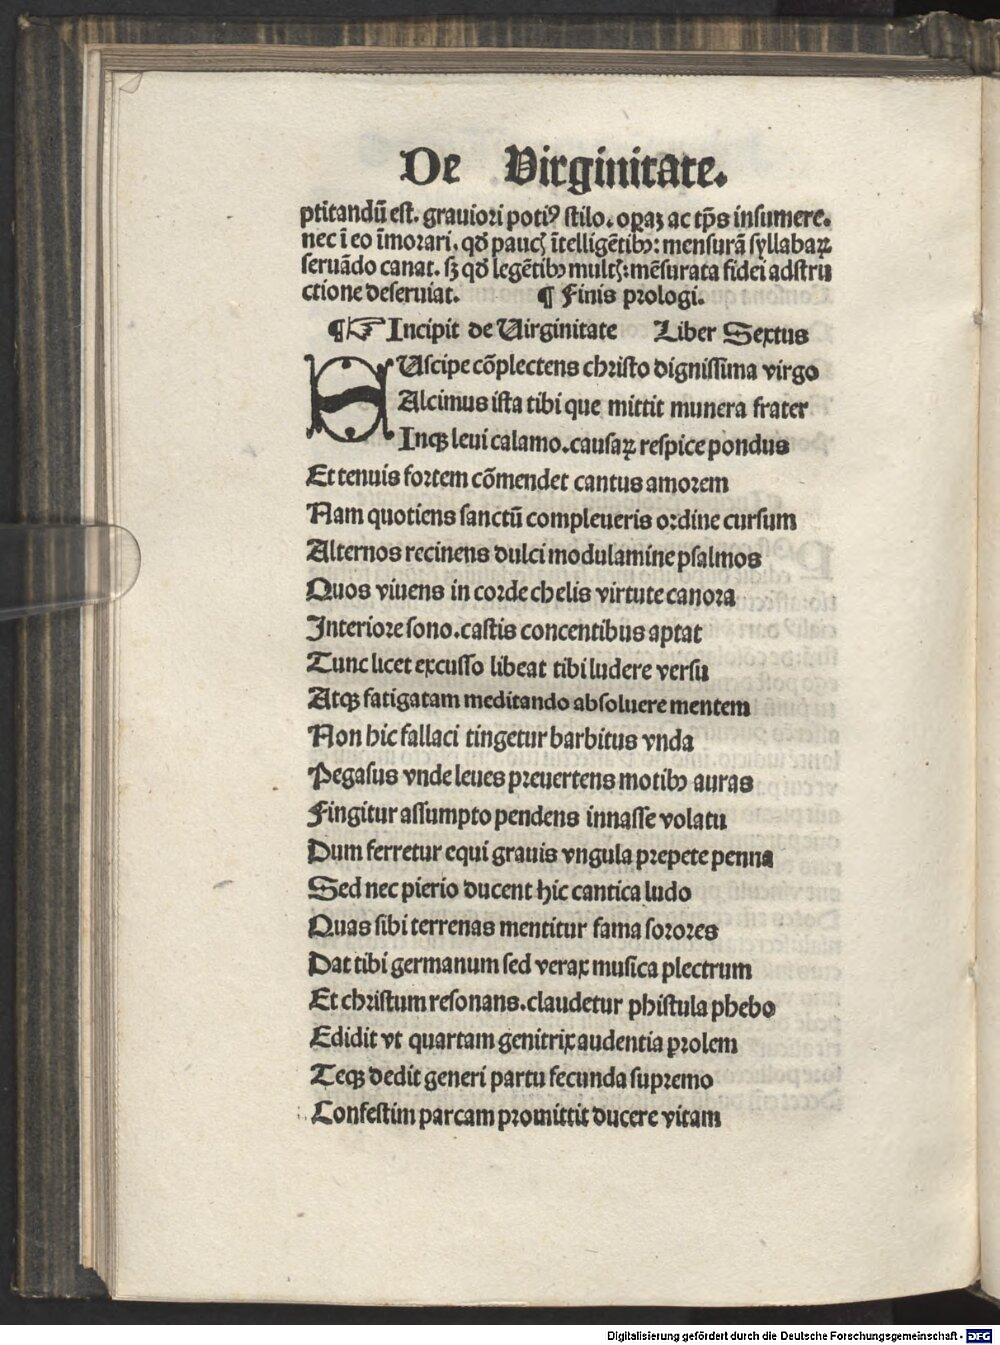 De Virginitate.
ptitandū est. grauiori potiꝰ stilo. oꝑaꝫ ac tp̄s insumere.
nec ī eo īmorari. qd̓ paucꝭ ītelligētibꝰ: mensurā syllabaꝝ
seruādo canat. sꝫ qd̓ legētibꝰ multꝭ: mēsurata fidei adstru
ctione deseruiat. ¶ Finis prologi.
¶☞ Incipit de Uirginitate Liber Sextus
SUscipe cōplectens christo dignissima virgo
Alcimus ista tibi que mittit munera frater
Inqꝫ leui calamo. causaꝝ respice pondus
Et tenuis fortem cōmendet cantus amorem
Nam quotiens sanctū compleueris ordine cursum
Alternos recinens dulci modulamine psalmos
Quos viuens in corde chelis virtute canora
Interiore sono. castis concentibus aptat
Tunc licet excusso libeat tibi ludere versu
Atqꝫ fatigatam meditando absoluere mentem
Non hic fallaci tingetur barbitus vnda
Pegasus vnde leues preuertens motibꝰ auras
Fingitur assumpto pendens innasse volatu
Dum ferretur equi grauis vngula prepete penna
Sed nec pierio ducent hic cantica ludo
Quas sibi terrenas mentitur fama sorores
Dat tibi germanum sed verax musica plectrum
Et christum resonans. claudetur phistula phebo
Edidit vt quartam genitrix audentia prolem
Teqꝫ dedit generi partu fecunda supremo
Confestim parcam promittit ducere vitam
Digitalisierung gefördert durch die Deutsche Forschungsgemeinschaft - DFG